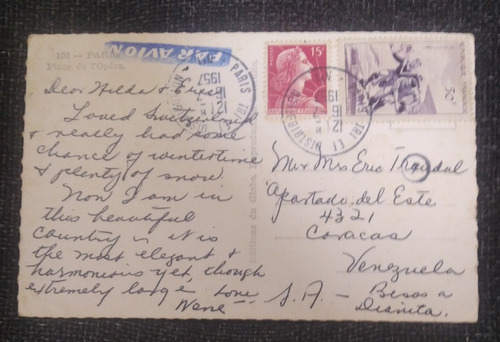 PARIS
Place de l'Opéra.
PAR AVION
Dear Hilda & Eric
Loved Switzerland
& really had some
chance of wintertime
& plenty of snow.
Now I am in
this beautiful
country & it is
the most elegant &
harmonious yet, though
extremely large love
Éditions du Globe
PARIS
1957
15F
TRI ET DISTRIBON
12 16
19
Mr Mrs Eric
Apartado del Este
4321
Caracas
Venezuela
S.A. - Besos a
Dianita.